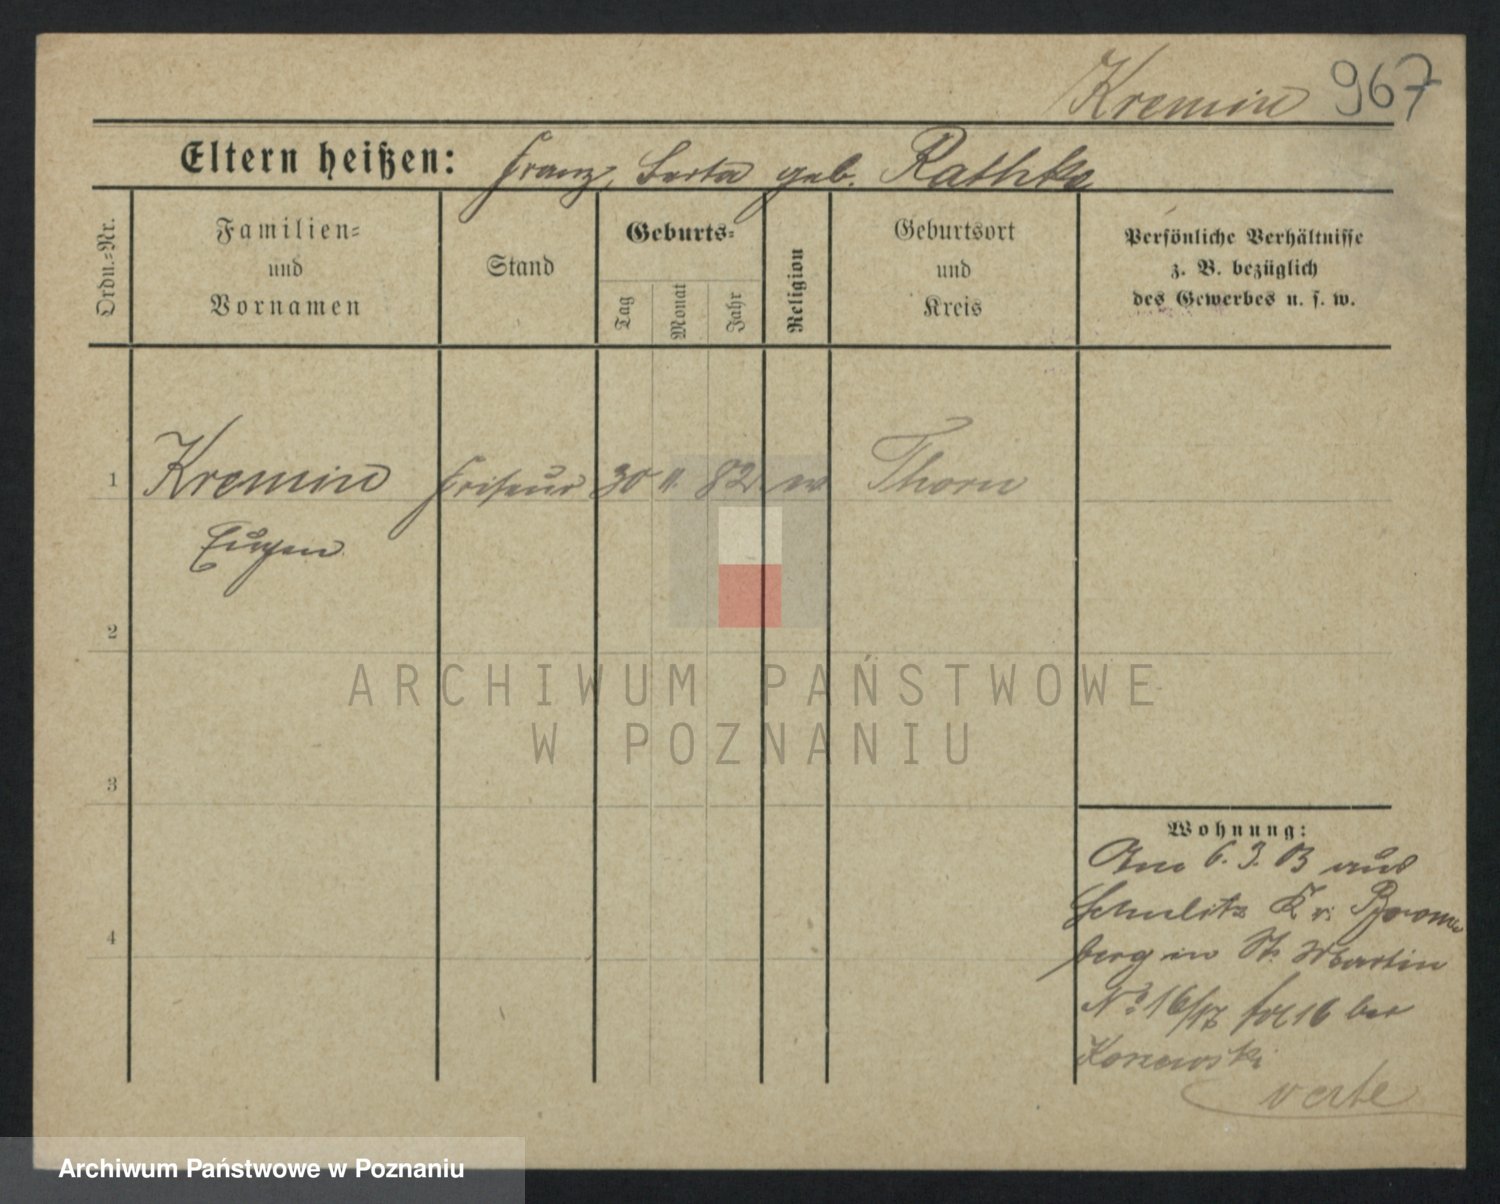 Kremin 967
Eltern heißen: Franz, Berta geb. Rathke
Ordn.-Nr.
Familien-
und
Vornamen
Stand
Geburts-
Tag
Monat
Jahr
Religion
Geburtsort
und
Kreis
Persönliche Verhältnisse
z. B. bezüglich
des Gewerbes u. s. w.
1 Kremin Friseur 30 11. 82 ev Thorn
Eugen
2
ARCHIWUM PAŃSTWOWE
W POZNANIU
3
Wohnung:
Am 6. 3. 03 aus
Schulitz Kr. Brom
4
berg in St. Martin
No 16/17 bei
verte
Archiwum Państwowe w Poznaniu